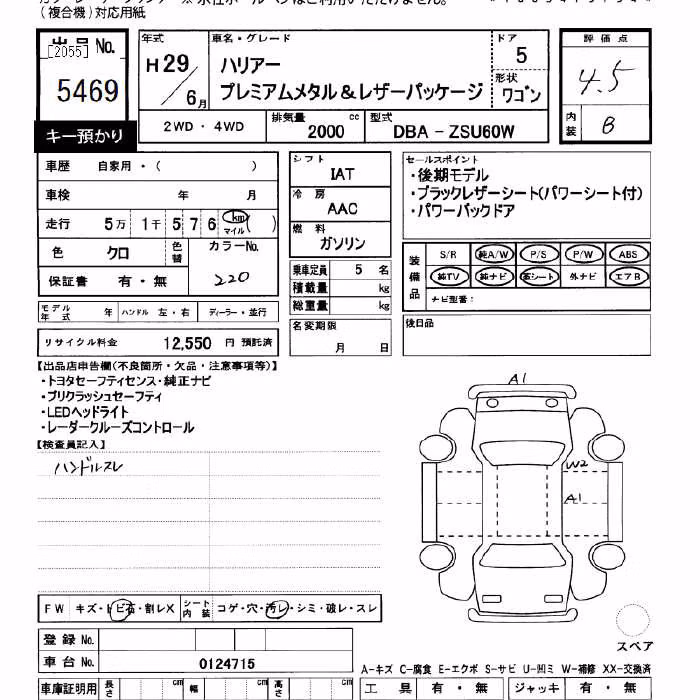 (複合機)対応用紙
出品No.
[2055]
5469
キー預かり
年式
H29/6月
車名・グレード
ハリアー
プレミアムメタル&レザーパッケージ
ドア
5
形状
ワゴン
2WD・4WD
排気量
2000 cc
型式
DBA - ZSU60W
評価点
4.5
内装
B
車歴 自家用・( )
車検 年 月
走行 5万 1千 5 7 6 km マイル ( )
色 クロ 色替 カラーNo. 220
保証書 有・無
モデル年式 年 ハンドル 左・右 ディーラー・並行
リサイクル料金 12,550 円 預託済
シフト
IAT
冷房
AAC
燃料
ガソリン
乗車定員 5 名
積載量 kg
総重量 kg
名変期限
月 日
セールスポイント
・後期モデル
・ブラックレザーシート(パワーシート付)
・パワーバックドア
装備品
S/R 純A/W P/S P/W ABS
純TV 純ナビ 革シート 外ナビ エアB
ナビ型番:
後日品
【出品店申告欄(不良箇所・欠品・注意事項等)】
・トヨタセーフティセンス・純正ナビ
・プリクラッシュセーフティ
・LEDヘッドライト
・レーダークルーズコントロール
【検査員記入】
ハンドルスレ
A1
W2
A1
スペア
FW キズ・トビ石・割レX シート内装 コゲ・穴・汚レ・シミ・破レ・スレ
登録No.
車台No. 0124715
A-キズ C-腐食 E-エクボ S-サビ U-凹ミ W-補修 XX-交換済
車庫証明用 長さ cm 幅 cm 高さ cm
工具 有・無 ジャッキ 有・無